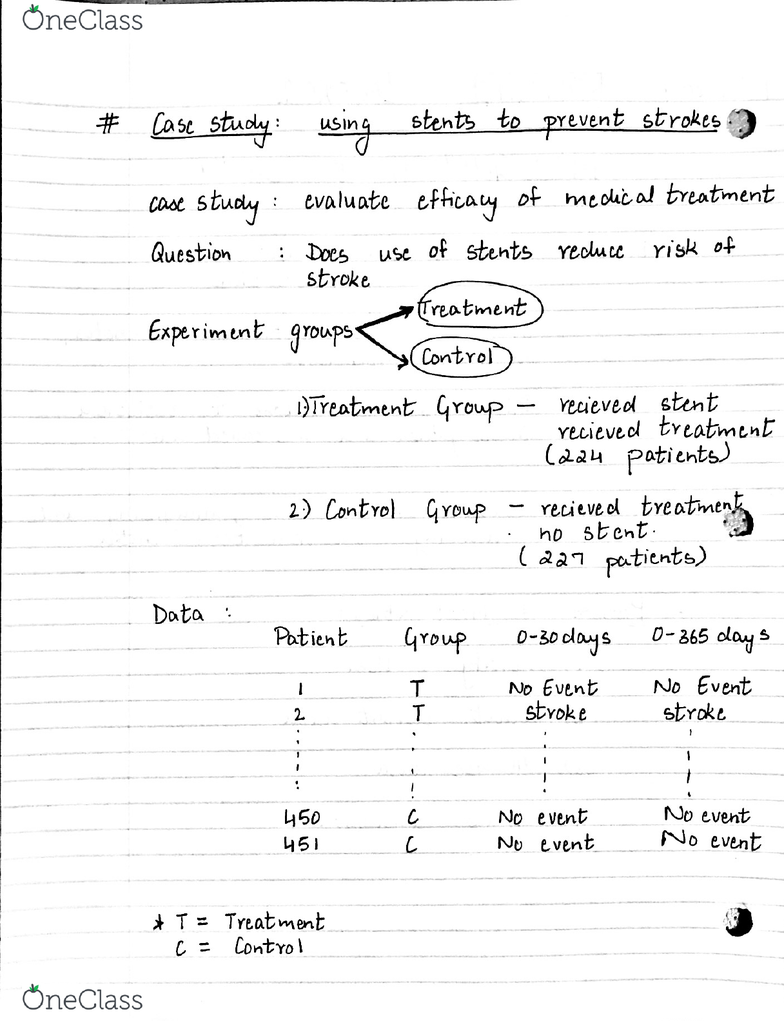 OneClass
# Case study: using stents to prevent strokes
case study : evaluate efficacy of medical treatment
Question : Does use of stents reduce risk of
stroke
Treatment
Experiment groups
Control
1) Treatment Group – recieved stent
recieved treatment
(224 patients)
2.) Control Group – recieved treatment
no stent.
(227 patients)
Data :
Patient Group 0-30 days 0-365 days
1 T No Event No Event
2 T stroke stroke
450 C No event No event
451 C No event No event
* T = Treatment
C = Control
OneClass